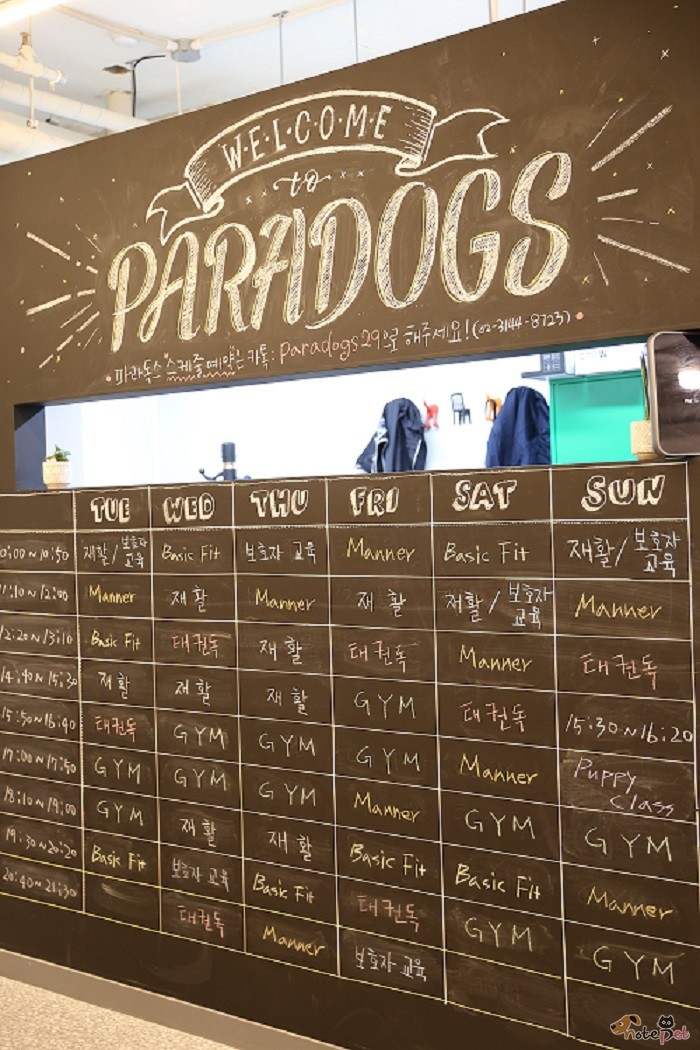 W·E·L·C·O·M·E
to
PARADOGS
파라독스 스케줄예약은 카톡: paradogs29으로 해주세요! (02-3144-8723)
TUE WED THU FRI SAT SUN
0:00~10:50 재활/보호자 교육 Basic Fit 보호자 교육 Manner Basic Fit 재활/보호자 교육
11:10~12:00 Manner 재활 Manner 재활 재활/보호자 교육 Manner
12:20~13:10 Basic Fit 태권독 재활 태권독 Manner 태권독
14:40~15:30 재활 재활 재활 GYM 태권독 15:30~16:20
15:50~16:40 태권독 GYM GYM GYM Manner Puppy Class
17:00~17:50 GYM GYM GYM Manner GYM GYM
18:10~19:00 GYM 재활 재활 Basic Fit Basic Fit Manner
19:30~20:20 Basic Fit 보호자 교육 Basic Fit 태권독 GYM GYM
20:40~21:30 태권독 Manner 보호자 교육
notepet